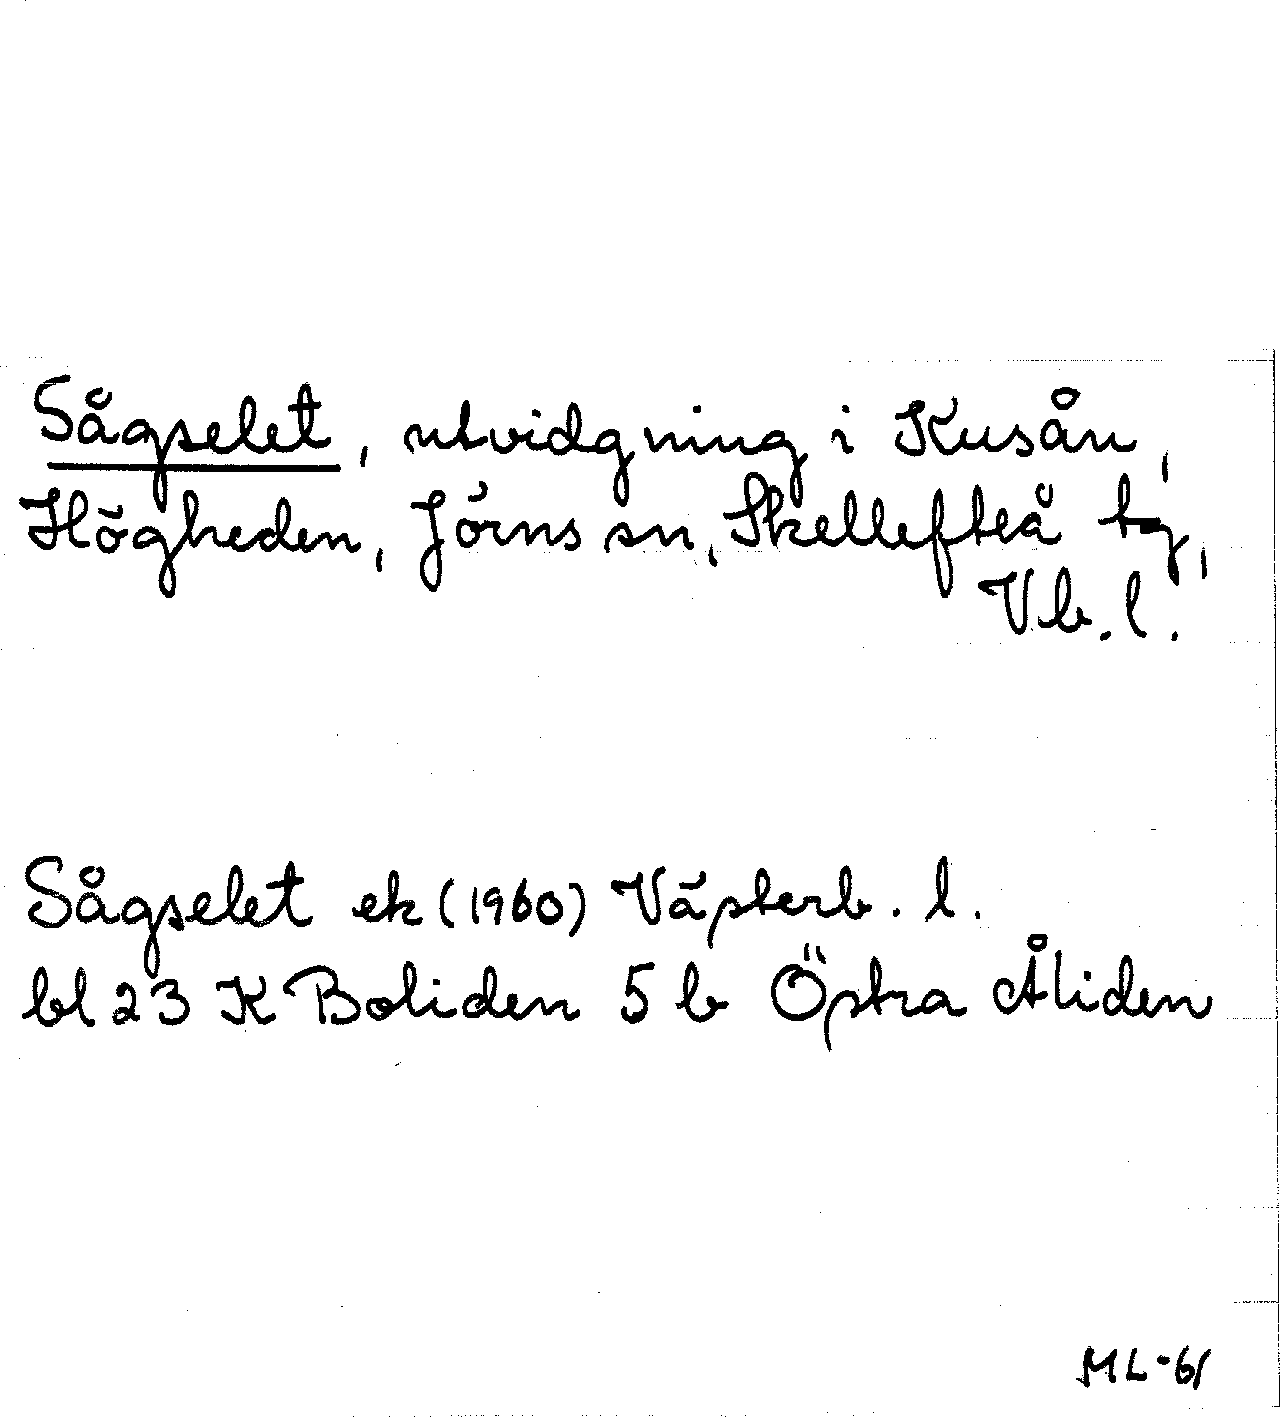 Sågselet, utvidgning i Kusån,
Högheden, Jörns sn, Skellefteå tg,
Vb. l.
Sågselet ek (1960) Västerb. l.
bl 23 K Boliden 5 b Östra Åliden
ML-61